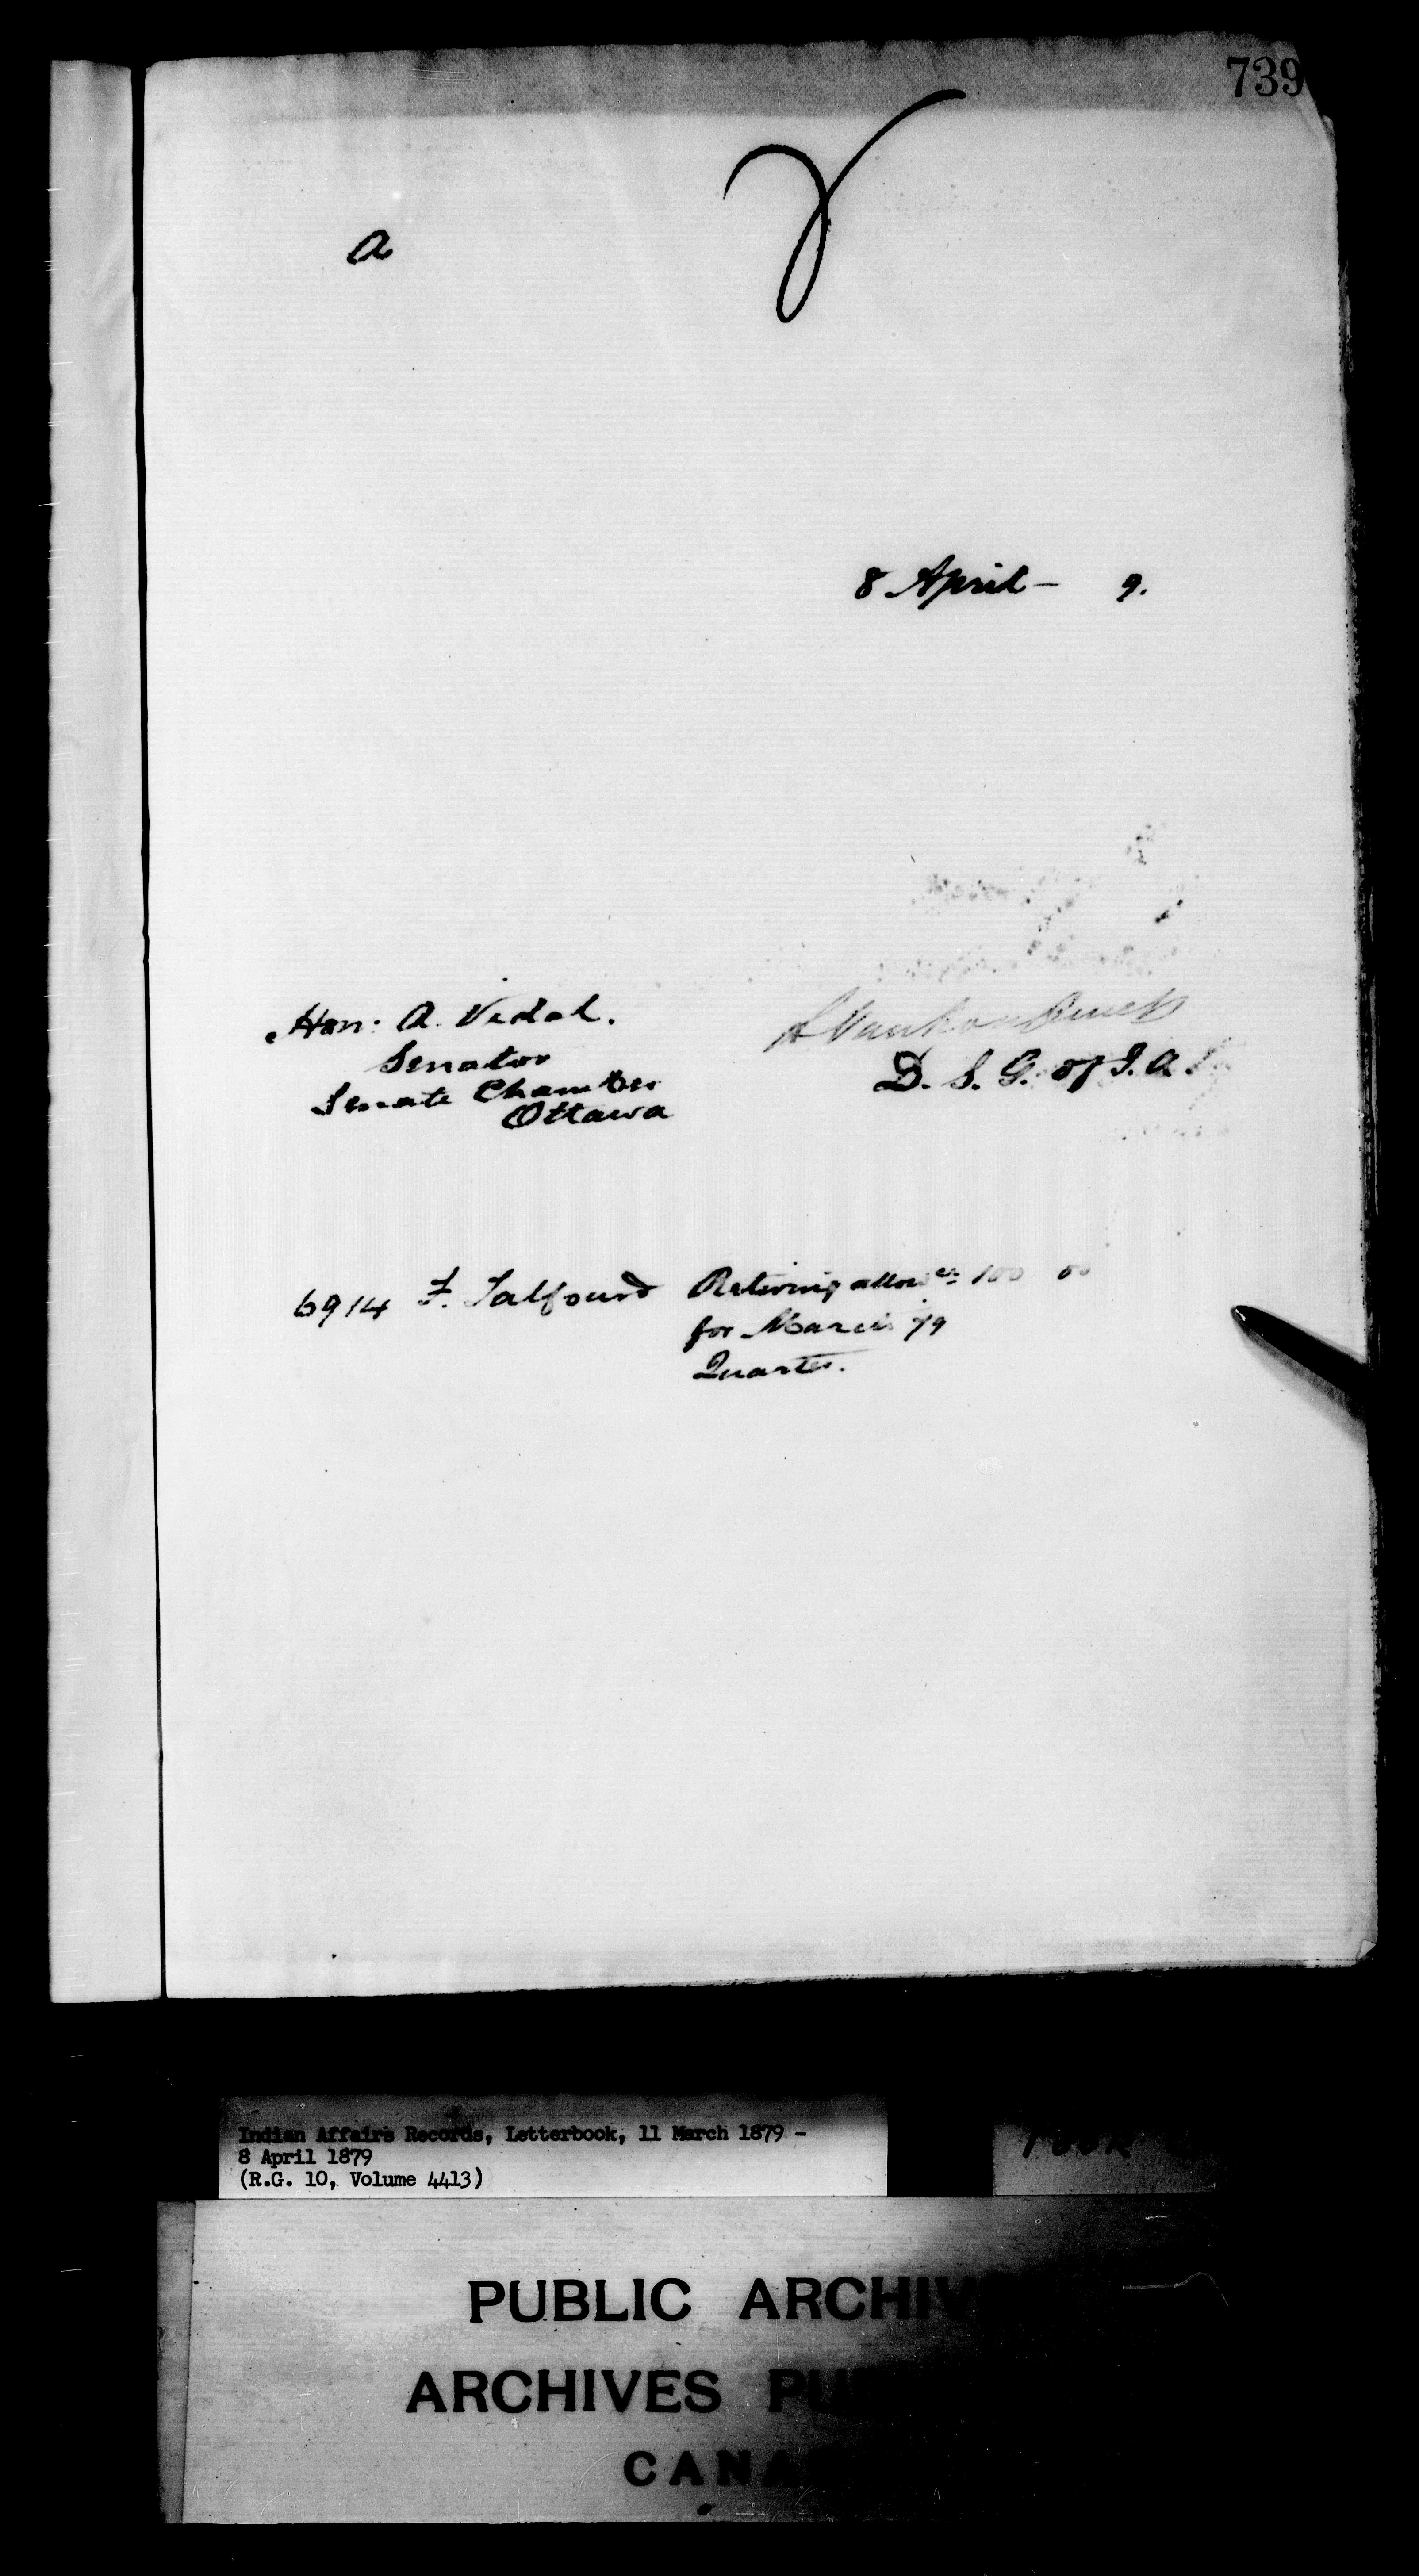 739
a
8 April - 9.
Hon: A. Vidal.
Senator
Senate Chamber
Ottawa
A Vankoughnet
D. S. G. of I. A.
6914 F. Talfourd Retiring allowce 100 00
for March 79
Quarter.
Indian Affairs Records, Letterbook, 11 March 1879 -
8 April 1879
(R.G. 10, Volume 4413)
PUBLIC ARCHIV
ARCHIVES PU
CANA